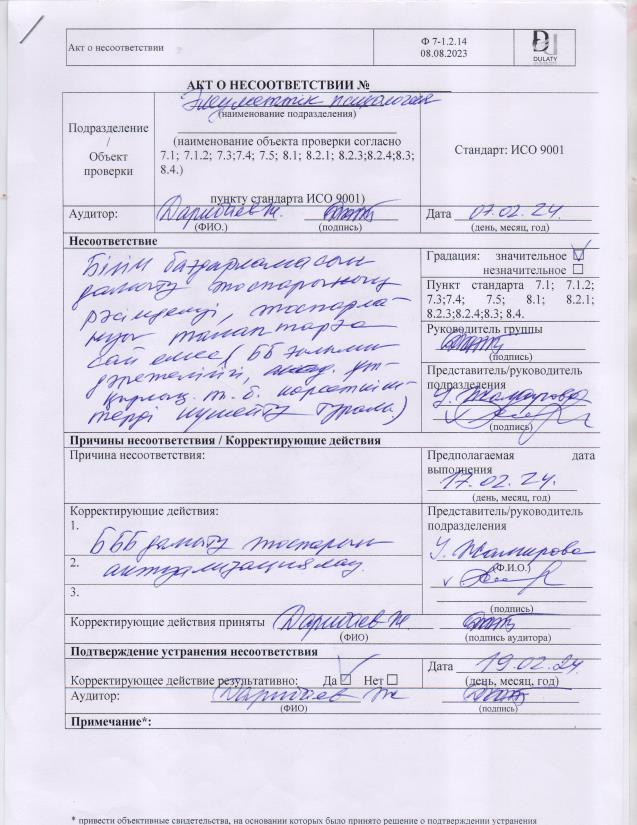 Акт о несоответствии
Ф 7-1.2.14
08.08.2023
DULATY
АКТ О НЕСООТВЕТСТВИИ №
Әлеуметтік психология
(наименование подразделения)
Подразделение
/
Объект
проверки
(наименование объекта проверки согласно
7.1; 7.1.2; 7.3;7.4; 7.5; 8.1; 8.2.1; 8.2.3;8.2.4;8.3;
8.4.)
пункту стандарта ИСО 9001)
Стандарт: ИСО 9001
Аудитор:
(ФИО.)
(подпись)
Дата 07.02.24.
(день, месяц, год)
Несоответствие
Білім бағдарламасын
дамыту жоспарының
рәсімделуі, жоспарла-
нуы талаптарға
сай емес (ББ ғылыми
т. б. көрсеткіш-
терді күшейту туралы)
Градация: значительное ☑
незначительное ☐
Пункт стандарта 7.1; 7.1.2;
7.3;7.4; 7.5; 8.1; 8.2.1;
8.2.3;8.2.4;8.3; 8.4.
Руководитель группы
(подпись)
Представитель/руководитель
подразделения
(подпись)
Причины несоответствия / Корректирующие действия
Причина несоответствия:
Предполагаемая дата
выполнения
17.02.24.
(день, месяц, год)
Корректирующие действия:
1.
БББ дамыту жоспарын
2.
актуализациялау.
3.
Представитель/руководитель
подразделения
(Ф.И.О.)
(подпись)
Корректирующие действия приняты
(ФИО)
(подпись аудитора)
Подтверждение устранения несоответствия
Корректирующее действие результативно: Да ☑ Нет ☐
Дата 19.02.24
(день, месяц, год)
Аудитор:
(ФИО)
(подпись)
Примечание*:
* привести объективные свидетельства, на основании которых было принято решение о подтверждении устранения